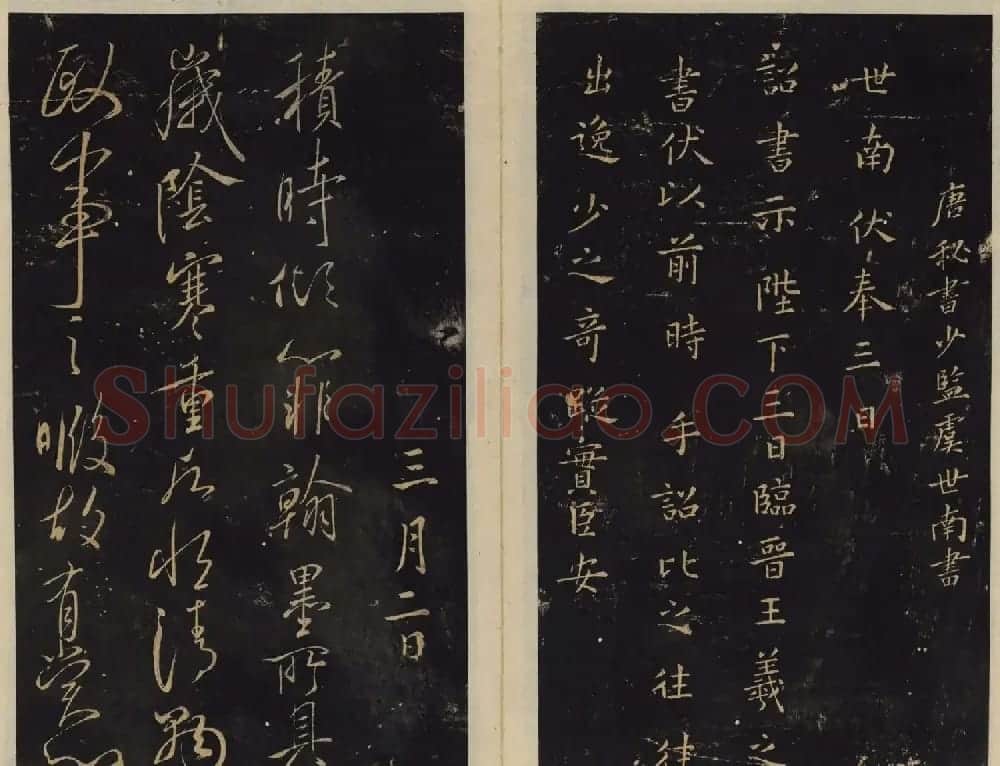 唐秘書少監虞世南書
世南伏奉三日
詔書示陛下三日臨晉王羲之
書伏以前時手詔比之往往
出逸少之奇蹤實臣安
三月二日
積時傾心非翰墨所具
歲陰寒重想清
政事之暇故有賞心
Shufaziliao.COM